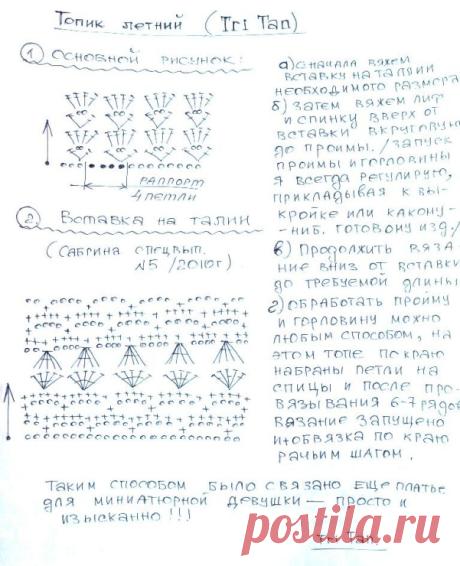 Топик летний (Tri Tan)
1 Основной рисунок:
Раппорт
4 петли
2 Вставка на талии
(Сабрина спецвып.
№5/2010г)
а) сначала вяжем
вставку на талии
необходимого размера
б) Затем вяжем лиф
и спинку вверх от
вставки вкруговую
до проймы. /Запуск
проймы и горловины
я всегда регулирую,
прикладывая к вы-
кройке или какому-
-ниб. готовому изд./
в) Продолжить вяза-
ние вниз от вставки
до требуемой длины
г) обработать пройму
и горловину можно
любым способом, на
этом топе по краю
набраны петли на
спицы и после про-
вязывания 6-7 рядов
вязание запущено
и обвязка по краю
рачьим шагом.
Таким способом было связано еще платье
для миниатюрной девушки — просто и
изысканно!!!
Tri Tan
postila.ru